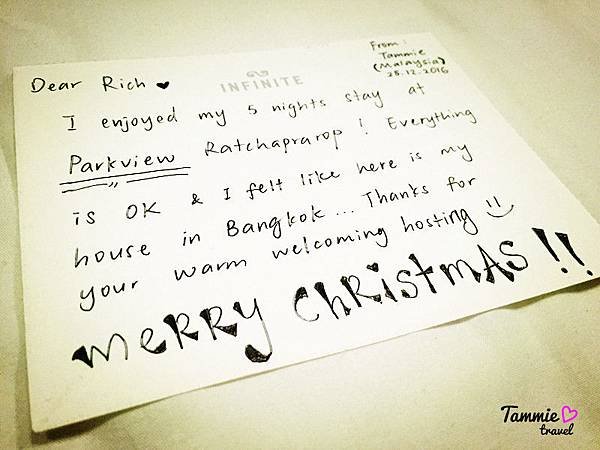 From:
Tammie
(Malaysia)
25.12.2016
INFINITE
Dear Rich ♥
I enjoyed my 5 nights stay at
Parkview Ratchaprarop ! Everything
is OK & I felt like here is my
house in Bangkok... Thanks for
your warm welcoming hosting
MERRY CHRISTMAS !!
Tammie
travel